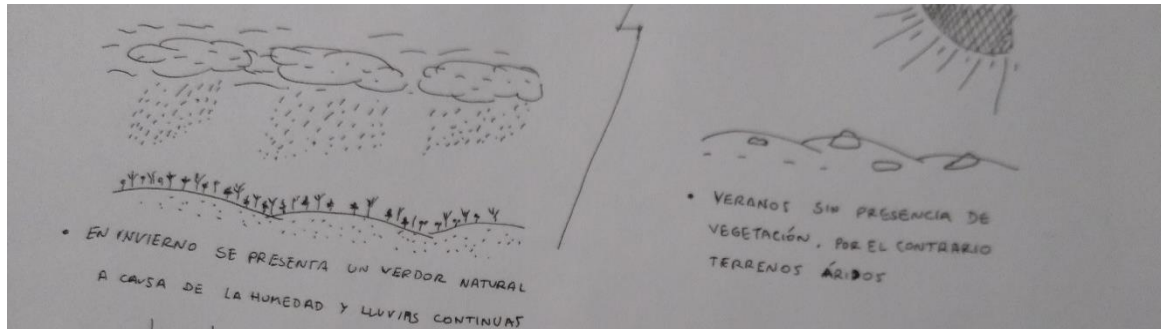 • EN INVIERNO SE PRESENTA UN VERDOR NATURAL
A CAUSA DE LA HUMEDAD Y LLUVIAS CONTINUAS
• VERANOS SIN PRESENCIA DE
VEGETACIÓN, POR EL CONTRARIO
TERRENOS ÁRIDOS